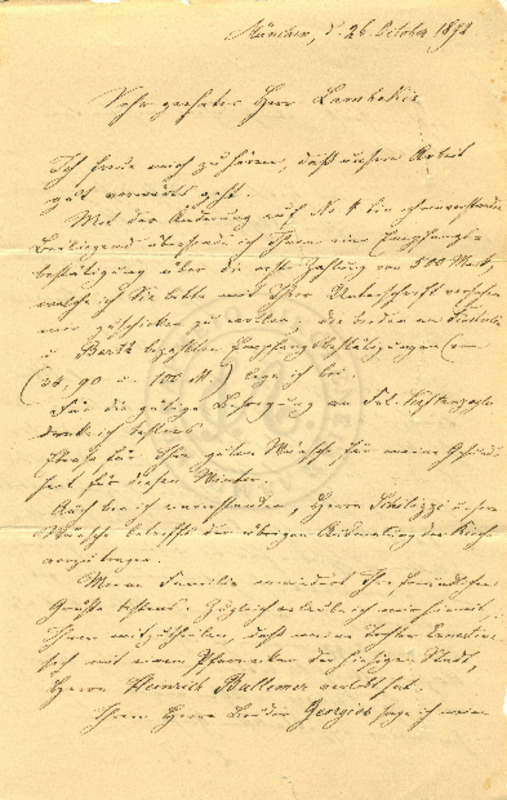 München, d. 26. October 1892
Sehr geehrter Herr Lambakis
Ich freue mich zu hören, daß unsere Arbeit
gut vorwärts geht.
Mit der Änderung auf No 4 bin ich einverstanden
Beiliegend übersende ich Ihnen eine Empfangs-
bestätigung über die erste Zahlung von 500 Mark,
welche ich Sie bitte mit Ihrer Unterschrift versehen
mir zuschicken zu wollen, die beiden an
u. Barth bezahlten Empfangsbestätigungen
(34, 90 u. 100 M.) lege ich bei.
Für die gütige Besorgung an Frl.
danke ich bestens
Ebenso für Ihre guten Wünsche für meine Gesund-
heit für diesen Winter.
Auch bin ich einverstanden, Herrn Schilizzi unsere
Wünsche betreffs der übrigen Ausmalung der Kirche
vorzutragen.
Meine Familie erwidert Ihre freundlichen
Grüße bestens. Zugleich erlaube ich mir hiemit
Ihnen mitzutheilen, daß meine Tochter Ernestine
sich mit einem der hiesigen Stadt,
Herrn Heinrich Bullemer verlobt hat.
Ihrem Herrn Bruder Georgios sage ich meinen